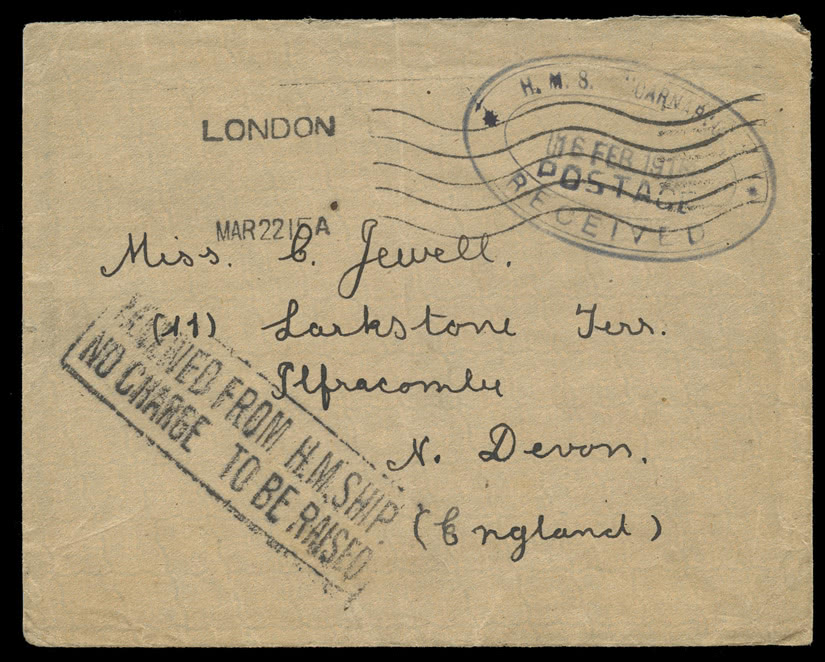 H. M. S.
16 FEB 191
POSTAGE
RECEIVED
LONDON
MAR 22 15 A
Miss. C. Jewell.
(11) Larkstone Terr.
Ilfracombe
N. Devon.
(England)
RECEIVED FROM H.M.SHIP.
NO CHARGE TO BE RAISED